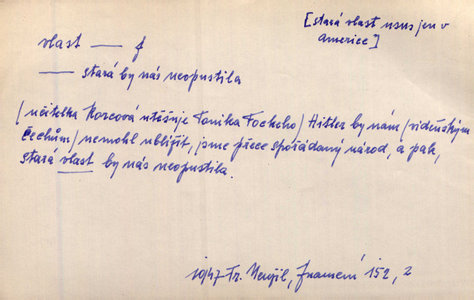 [stará vlast usus jen v
Americe]
vlast — f
— stará by nás neopustila
(učitelka Korcová utěšuje Toníka Fockeho) Hitler by nám (vídeňským
Čechům) nemohl ublížit, jsme přece spořádaný národ, a pak,
stará vlast by nás neopustila.
1947 Fr. Neužil, Znamení 152, 2